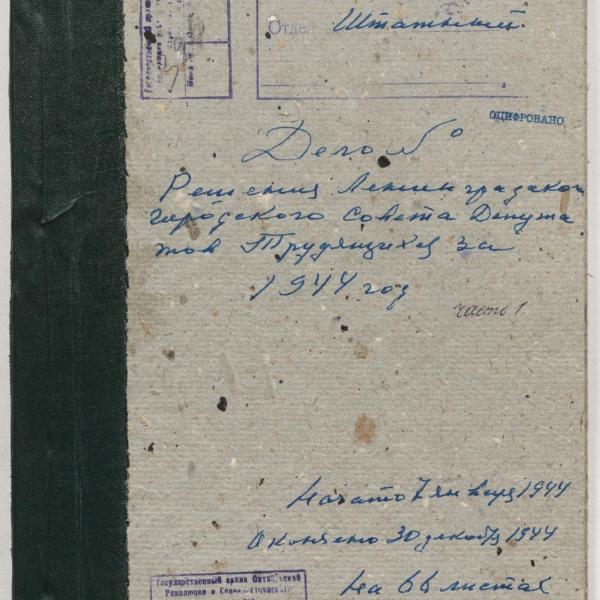 Штатный
Отдел
ОЦИФРОВАНО
Дело №
Решения Ленинградского
городского Совета Депута
тов Трудящихся за
1944 год
часть 1
Начато 7 января 1944
Окончено 30 декабря 1944
Государственный архив Октябрьской
Революции и Социалистического
На 66 листах